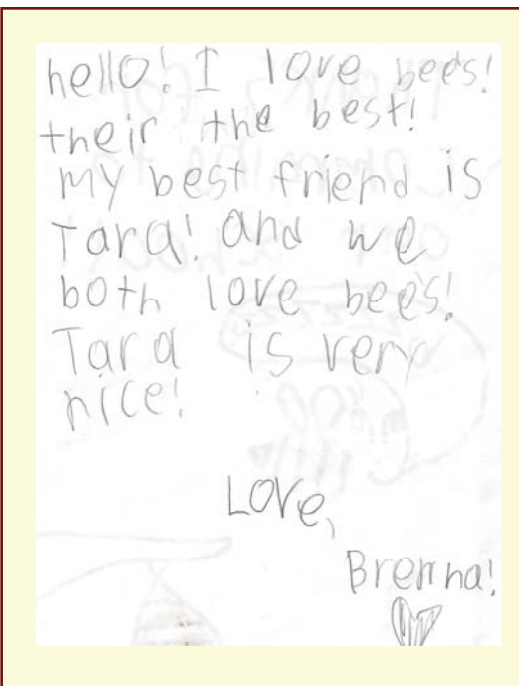 hello! I love bees!
their the best!
my best friend is
Tara! and we
both love bees!
Tara is very
nice!
Love,
Brenna!